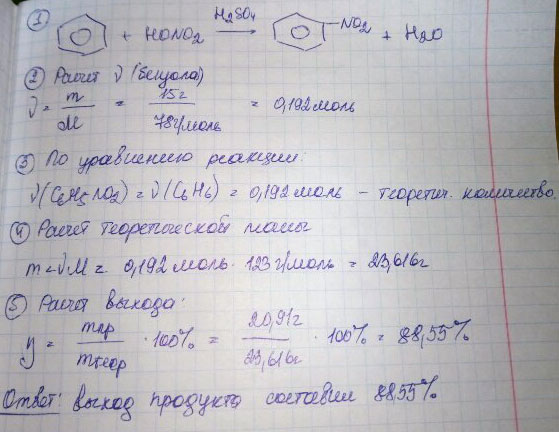 1 + HONO2 H2SO4 → NO2 + H2O
2 Расчет ν (бензола)
ν = m/M = 15г/78г/моль = 0,192 моль
3 По уравнению реакции:
ν(C6H5NO2) = ν(C6H6) = 0,192 моль – теоретич. количество
4 Расчет теоретической массы
m = νM = 0,192 моль · 123 г/моль = 23,616г
5 Расчет выхода:
y = mпр/mтеор · 100% = 20,91г/23,616г · 100% = 88,55%
Ответ: выход продукта составил 88,55%